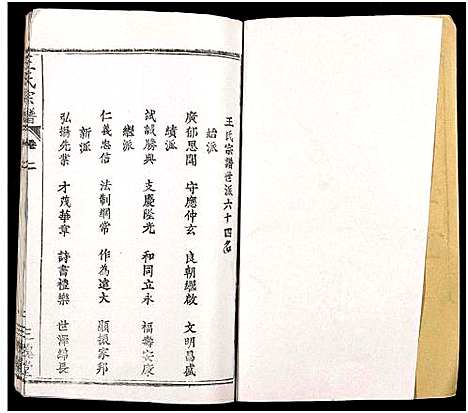 王氏宗譜世派六十四名
始派
廣郁恩聞 守應仲玄 良朝繼啟 文明昌盛
續派
誠毅勝典 支慶陞光 和同立永 福壽安康
繼派
仁義忠信 法制綱常 作為遠大 顯振家邦
新派
弘揚先業 才茂華章 詩書禮樂 世澤綿長
王氏宗譜
卷二
三槐堂